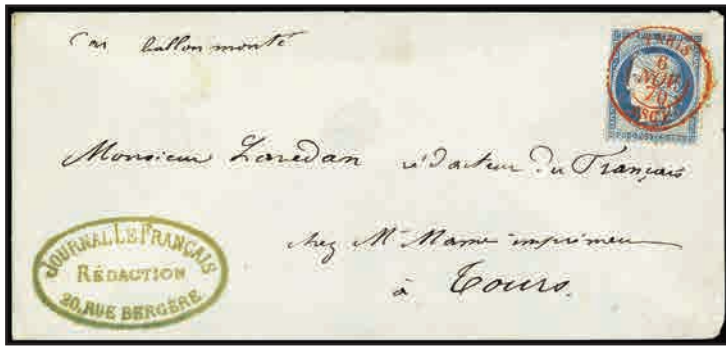 Par ballon monté
PARIS
6
NOV.
70
Monsieur Lavedan rédacteur du Français
chez Mr Mame imprimeur
à Tours.
JOURNAL LE FRANÇAIS
RÉDACTION
20, RUE BERGÈRE